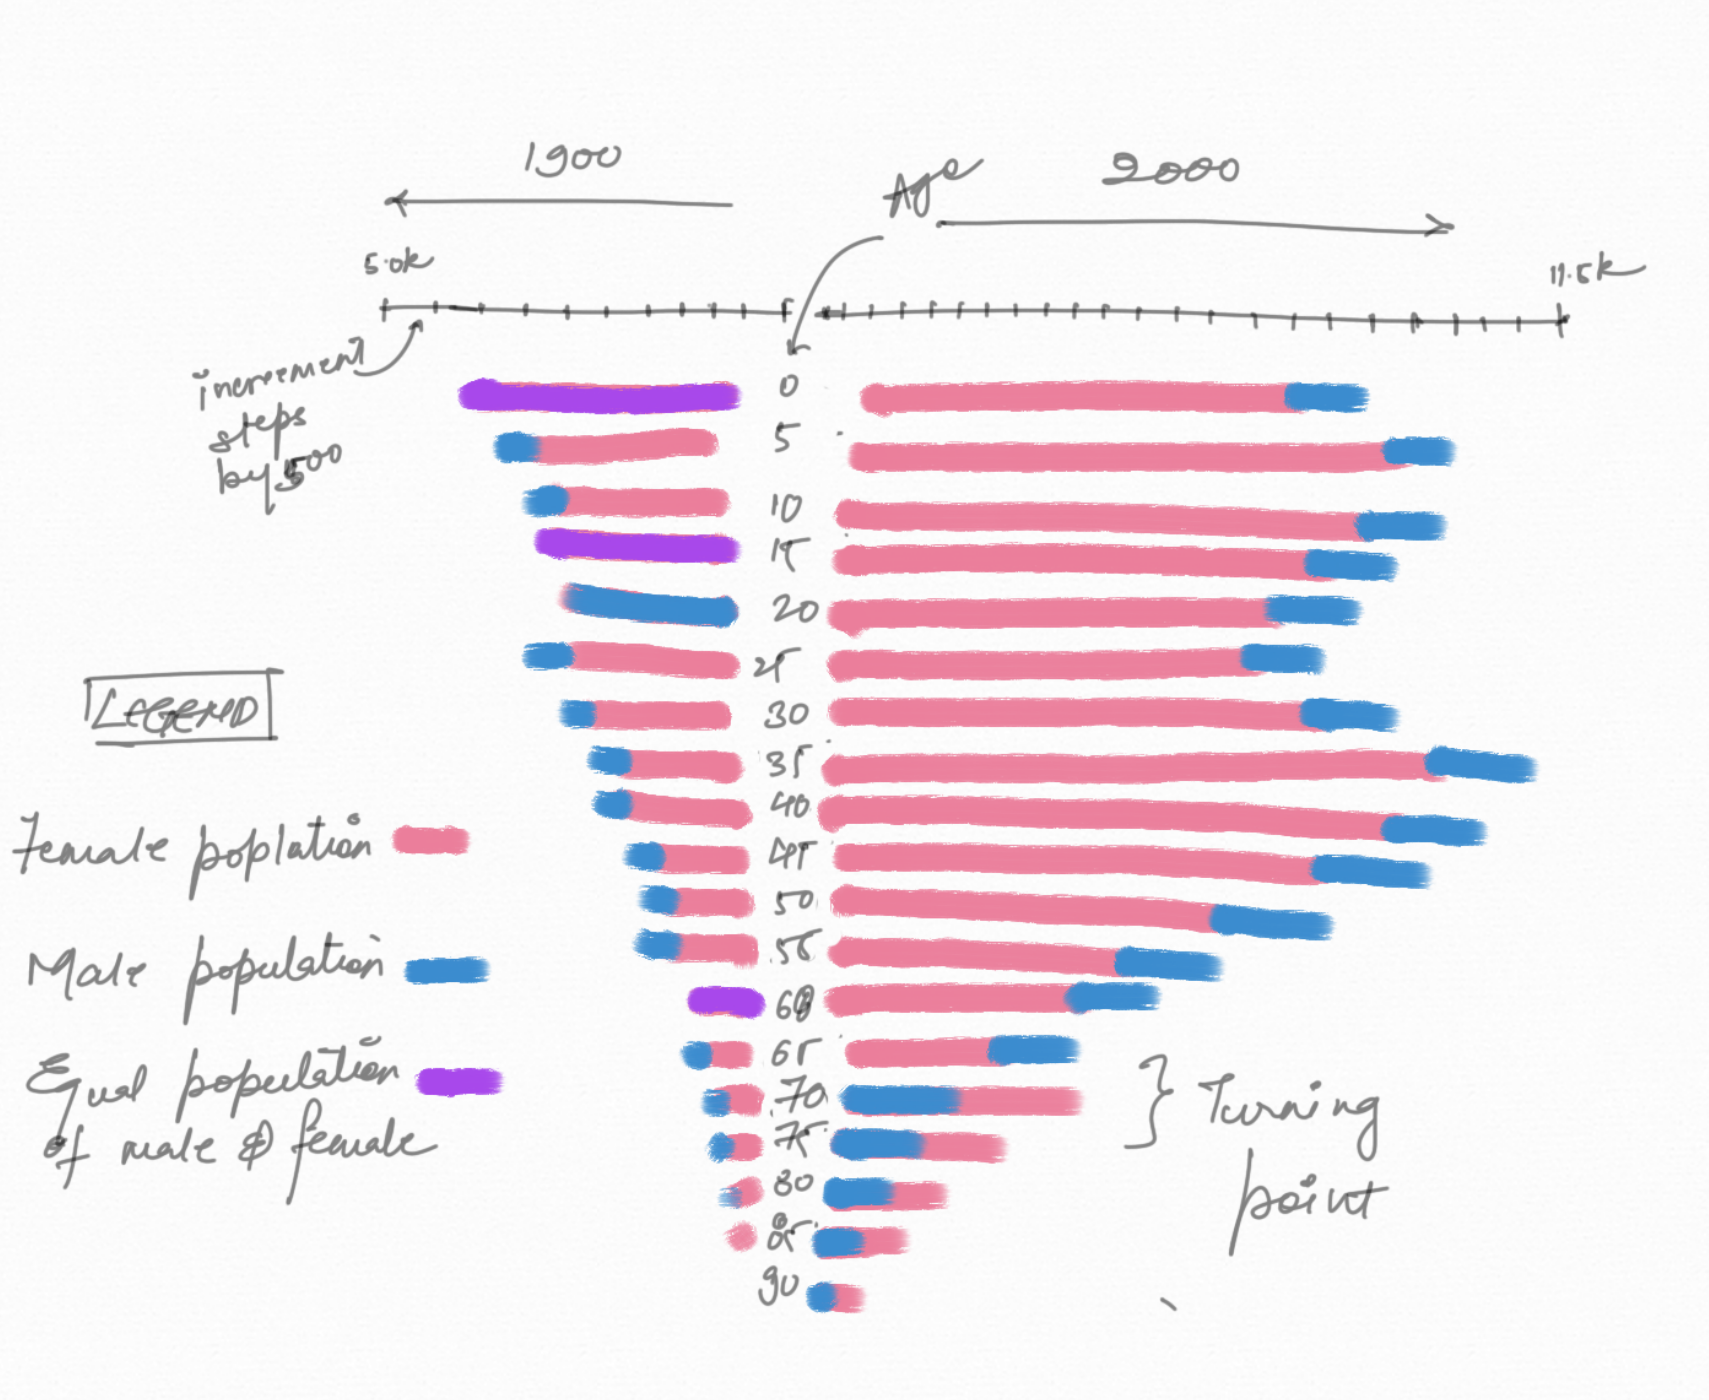 1900
Age
2000
5.0k
11.5k
increment
steps
by 500
0
5
10
15
20
25
30
35
40
45
50
55
60
65
70
75
80
85
90
LEGEND
Female poplation
Male population
Equal population
of male & female
} Turning
point